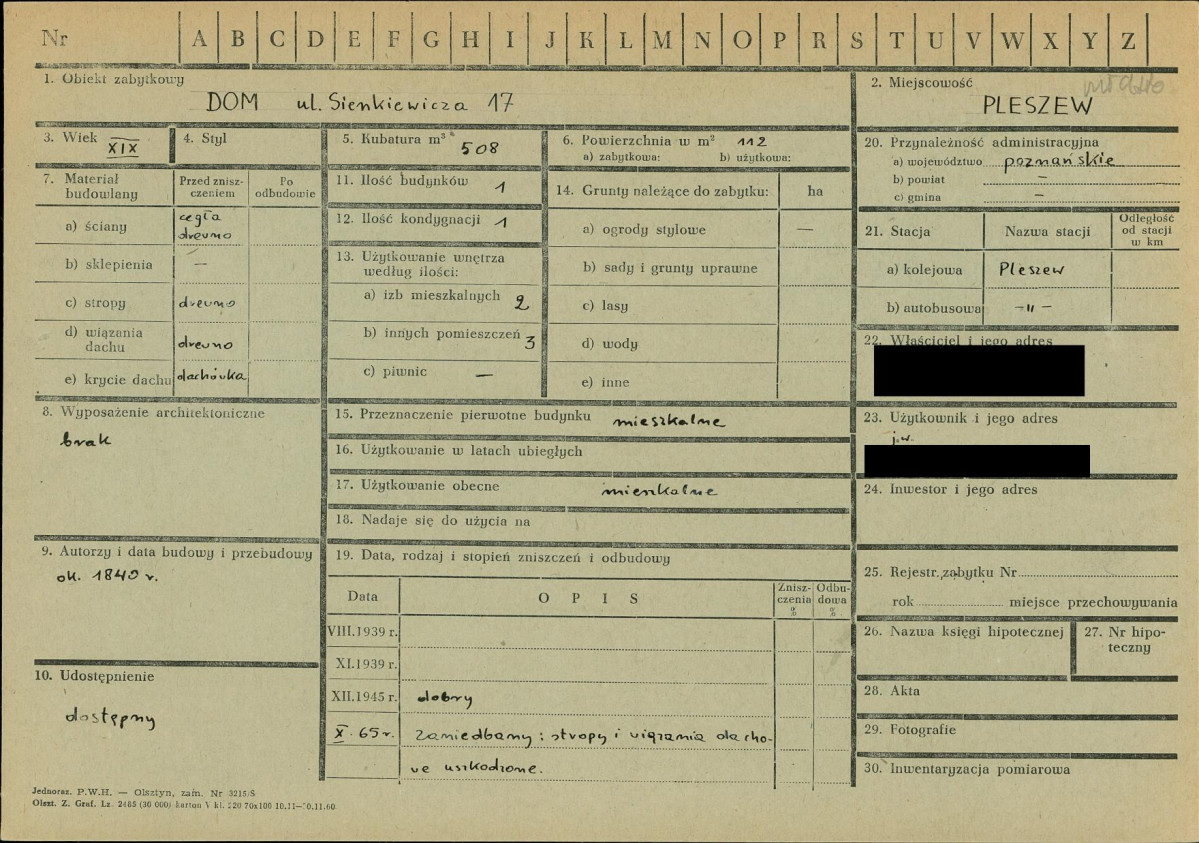 Nr A B C D E F G H I J K L M N O P R S T U V W X Y Z
1. Obiekt zabytkowy
DOM ul. Sienkiewicza 17
2. Miejscowość
PLESZEW
3. Wiek XIX
4. Styl
5. Kubatura m³ 508
6. Powierzchnia w m² 112
a) zabytkowa: b) użytkowa:
7. Materiał budowlany
Przed zniszczeniem
Po odbudowie
a) ściany cegła drewno
b) sklepienia —
c) stropy drewno
d) wiązania dachu drewno
e) krycie dachu dachówka
8. Wyposażenie architektoniczne
brak
9. Autorzy i data budowy i przebudowy
ok. 1840 r.
10. Udostępnienie
dostępny
11. Ilość budynków 1
12. Ilość kondygnacji 1
13. Użytkowanie wnętrza
według ilości:
a) izb mieszkalnych 2
b) innych pomieszczeń 3
c) piwnic —
14. Grunty należące do zabytku: ha
a) ogrody stylowe —
b) sady i grunty uprawne
c) lasy
d) wody
e) inne
15. Przeznaczenie pierwotne budynku mieszkalne
16. Użytkowanie w latach ubiegłych
17. Użytkowanie obecne mieszkalne
18. Nadaje się do użycia na
19. Data, rodzaj i stopień zniszczeń i odbudowy
Data OPIS Zniszczenia % Odbudowa %
VIII.1939 r.
XI.1939 r.
XII.1945 r. dobry
X. 65 r. zaniedbany : stropy i wiązania dacho-
we uszkodzone.
20. Przynależność administracyjna
a) województwo poznańskie
b) powiat —
c) gmina —
21. Stacja Nazwa stacji Odległość od stacji w km
a) kolejowa Pleszew
b) autobusowa —"—
22. Właściciel i jego adres
23. Użytkownik i jego adres
j.w.
24. Inwestor i jego adres
25. Rejestr zabytku Nr
rok miejsce przechowywania
26. Nazwa księgi hipotecznej
27. Nr hipo-
teczny
28. Akta
29. Fotografie
30. Inwentaryzacja pomiarowa
Jednoraz. P.W.H. — Olsztyn, zam. Nr 3215/S
Olszt. Z. Graf. Lz. 2485 (30 000) karton V kl. 220 70x100 10.11—